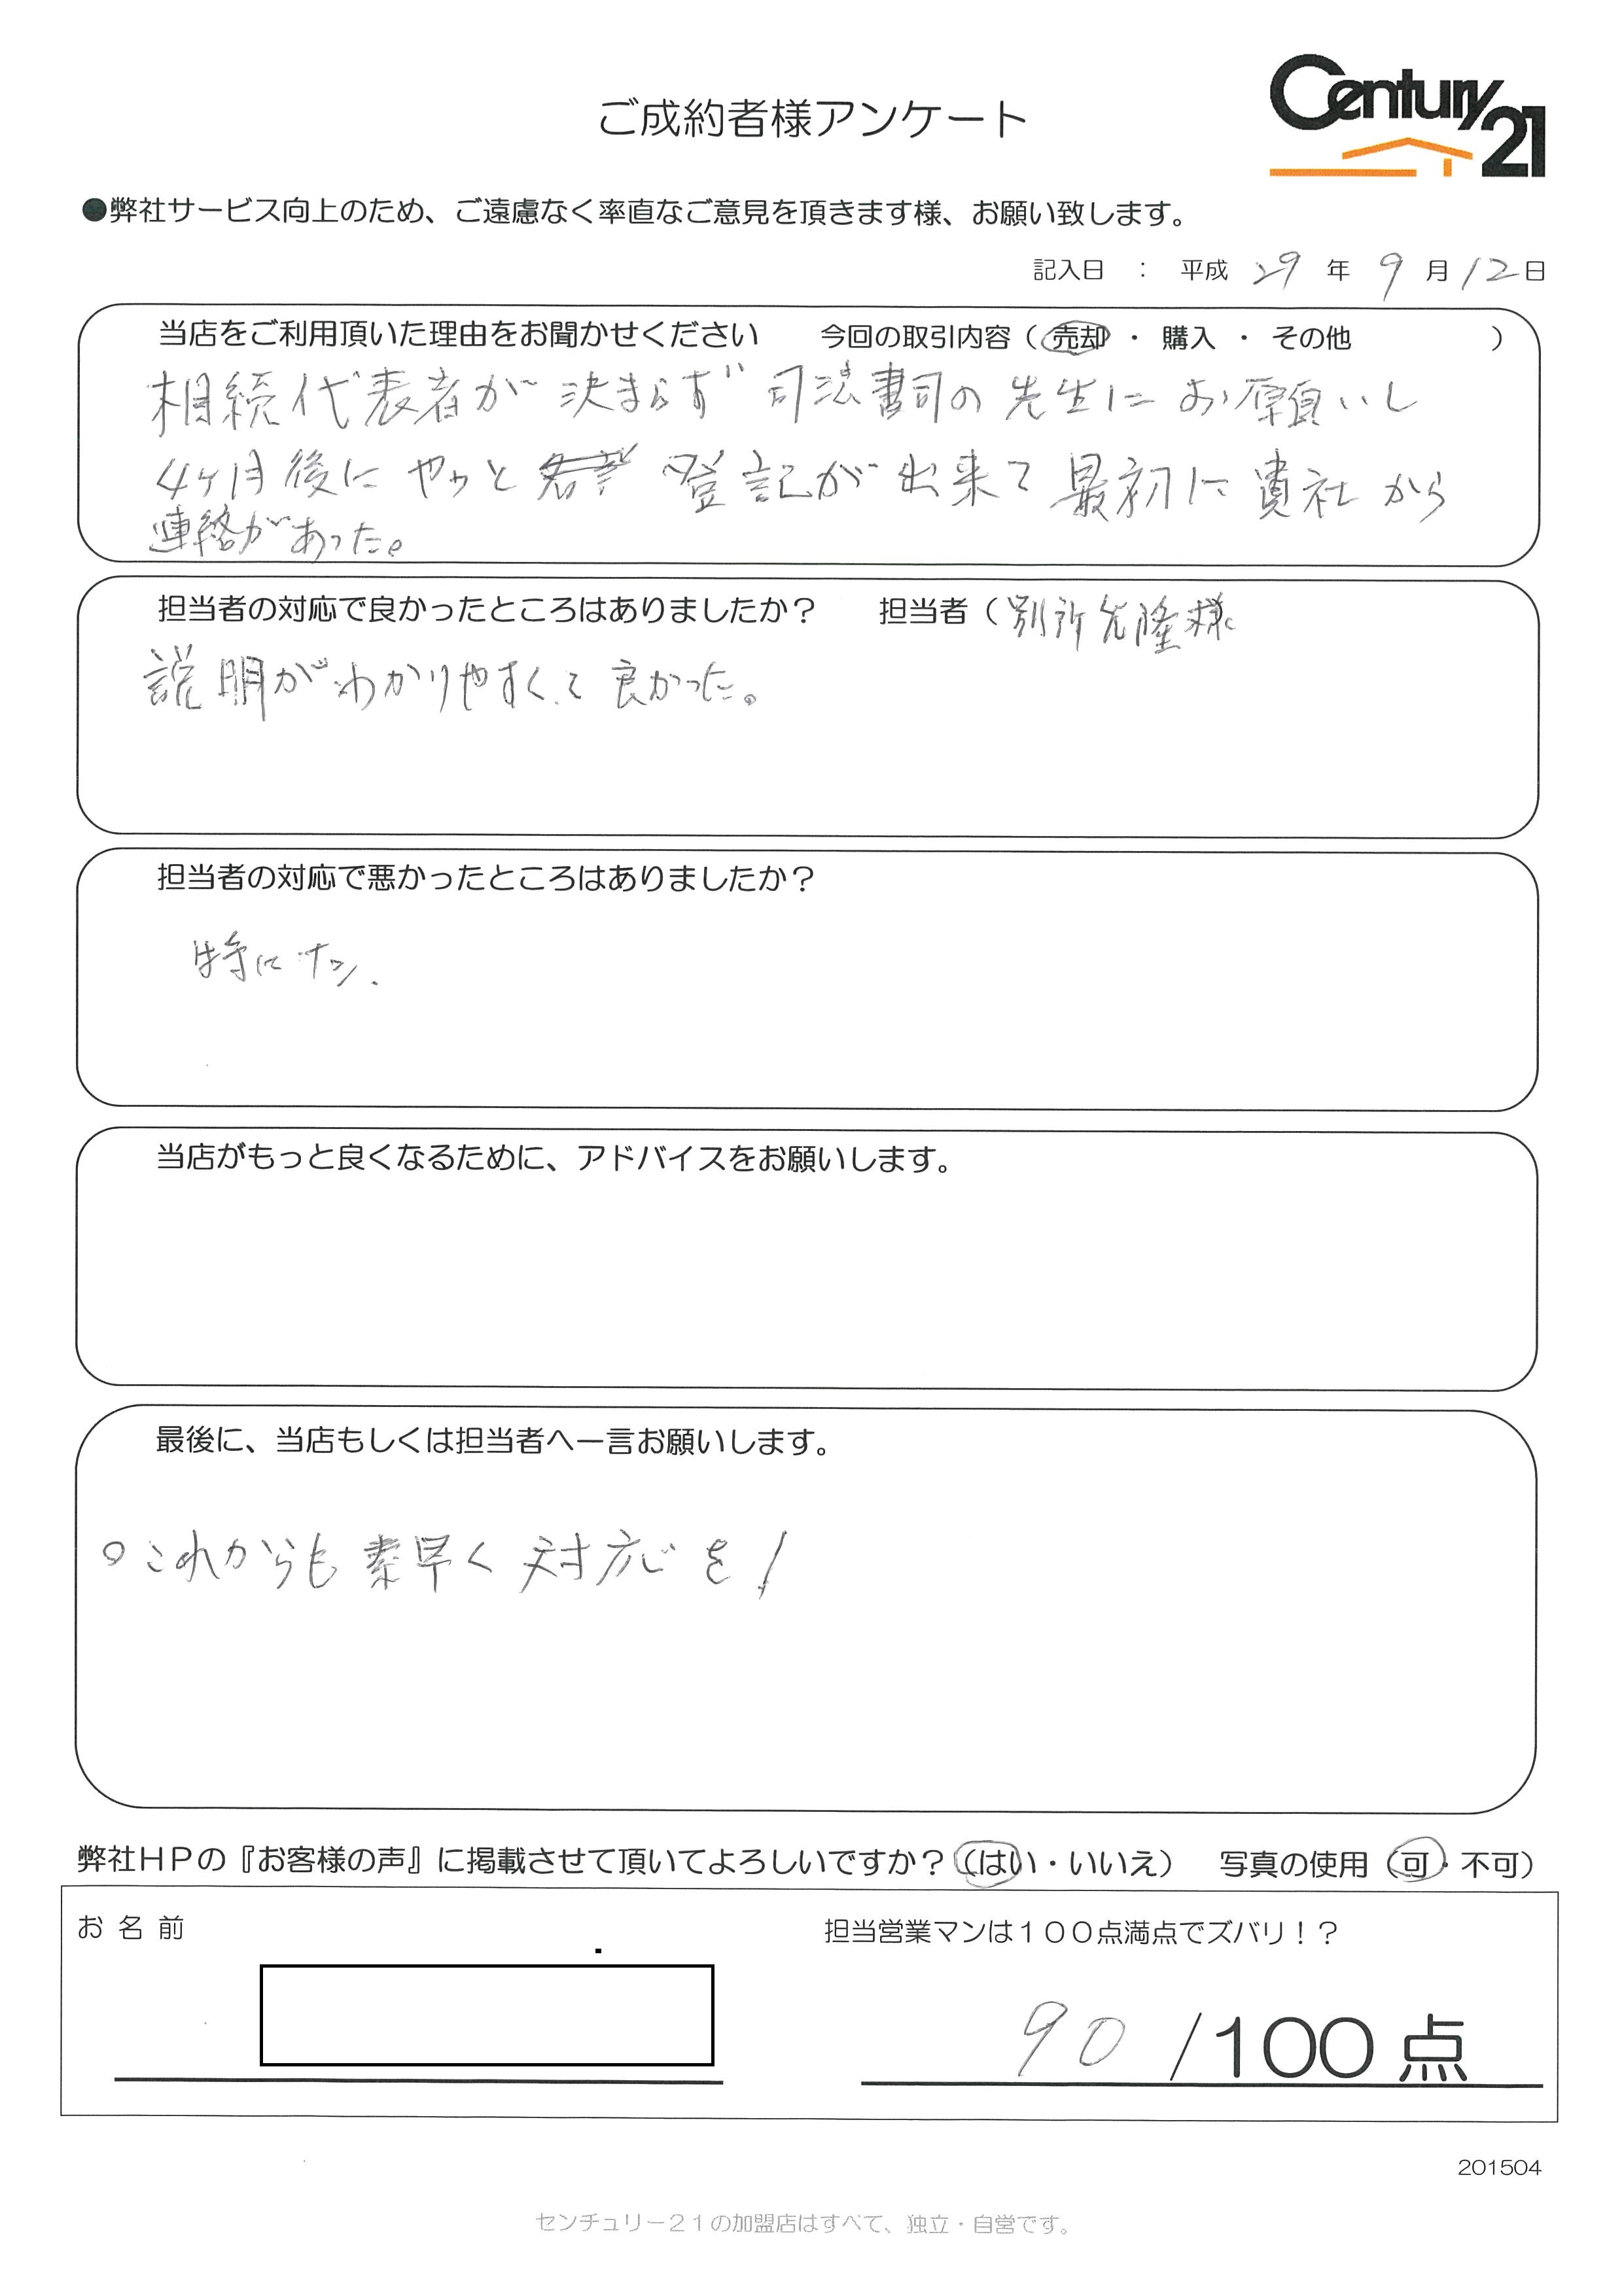 ご成約者様アンケート
Century 21
●弊社サービス向上のため、ご遠慮なく率直なご意見を頂きます様、お願い致します。
記入日 : 平成 29 年 9 月 12 日
当店をご利用頂いた理由をお聞かせください 今回の取引内容（ 売却 ・ 購入 ・ その他 ）
相続代表者が決まらず 司法書司の先生にお願いし
4ヶ月後に やっと 登記が出来て最初に貴社から
連絡があった。
担当者の対応で良かったところはありましたか？ 担当者（ 別所 隆様
説明がわかりやすくて良かった。
担当者の対応で悪かったところはありましたか？
特にナシ.
当店がもっと良くなるために、アドバイスをお願いします。
最後に、当店もしくは担当者へ一言お願いします。
○これからも素早く対応を！
弊社ＨＰの『お客様の声』に掲載させて頂いてよろしいですか？（はい・いいえ） 写真の使用（可・不可）
お 名 前 担当営業マンは１００点満点でズバリ！？
90 /100 点
201504
センチュリー２１の加盟店はすべて、独立・自営です。